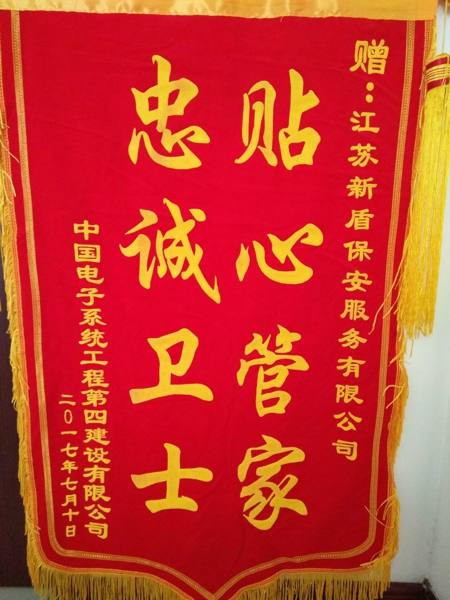 赠：江苏新盾保安服务有限公司
贴心管家
忠诚卫士
中国电子系统工程第四建设有限公司
二〇一七年七月十日